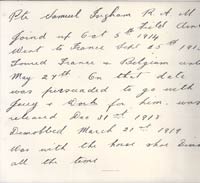 Pte Samuel Ingham R.A.M
Field Am
Joined up Oct 5th 1914
Went to France Sept 25th 191
Toured France & Belgium unt
May 27th. On that date
was persuaded to go with
Jerry & work for him, was
released Dec 31st 1918
Demobbed March 21st 1919
Was with the horse shoe Divis
all the time